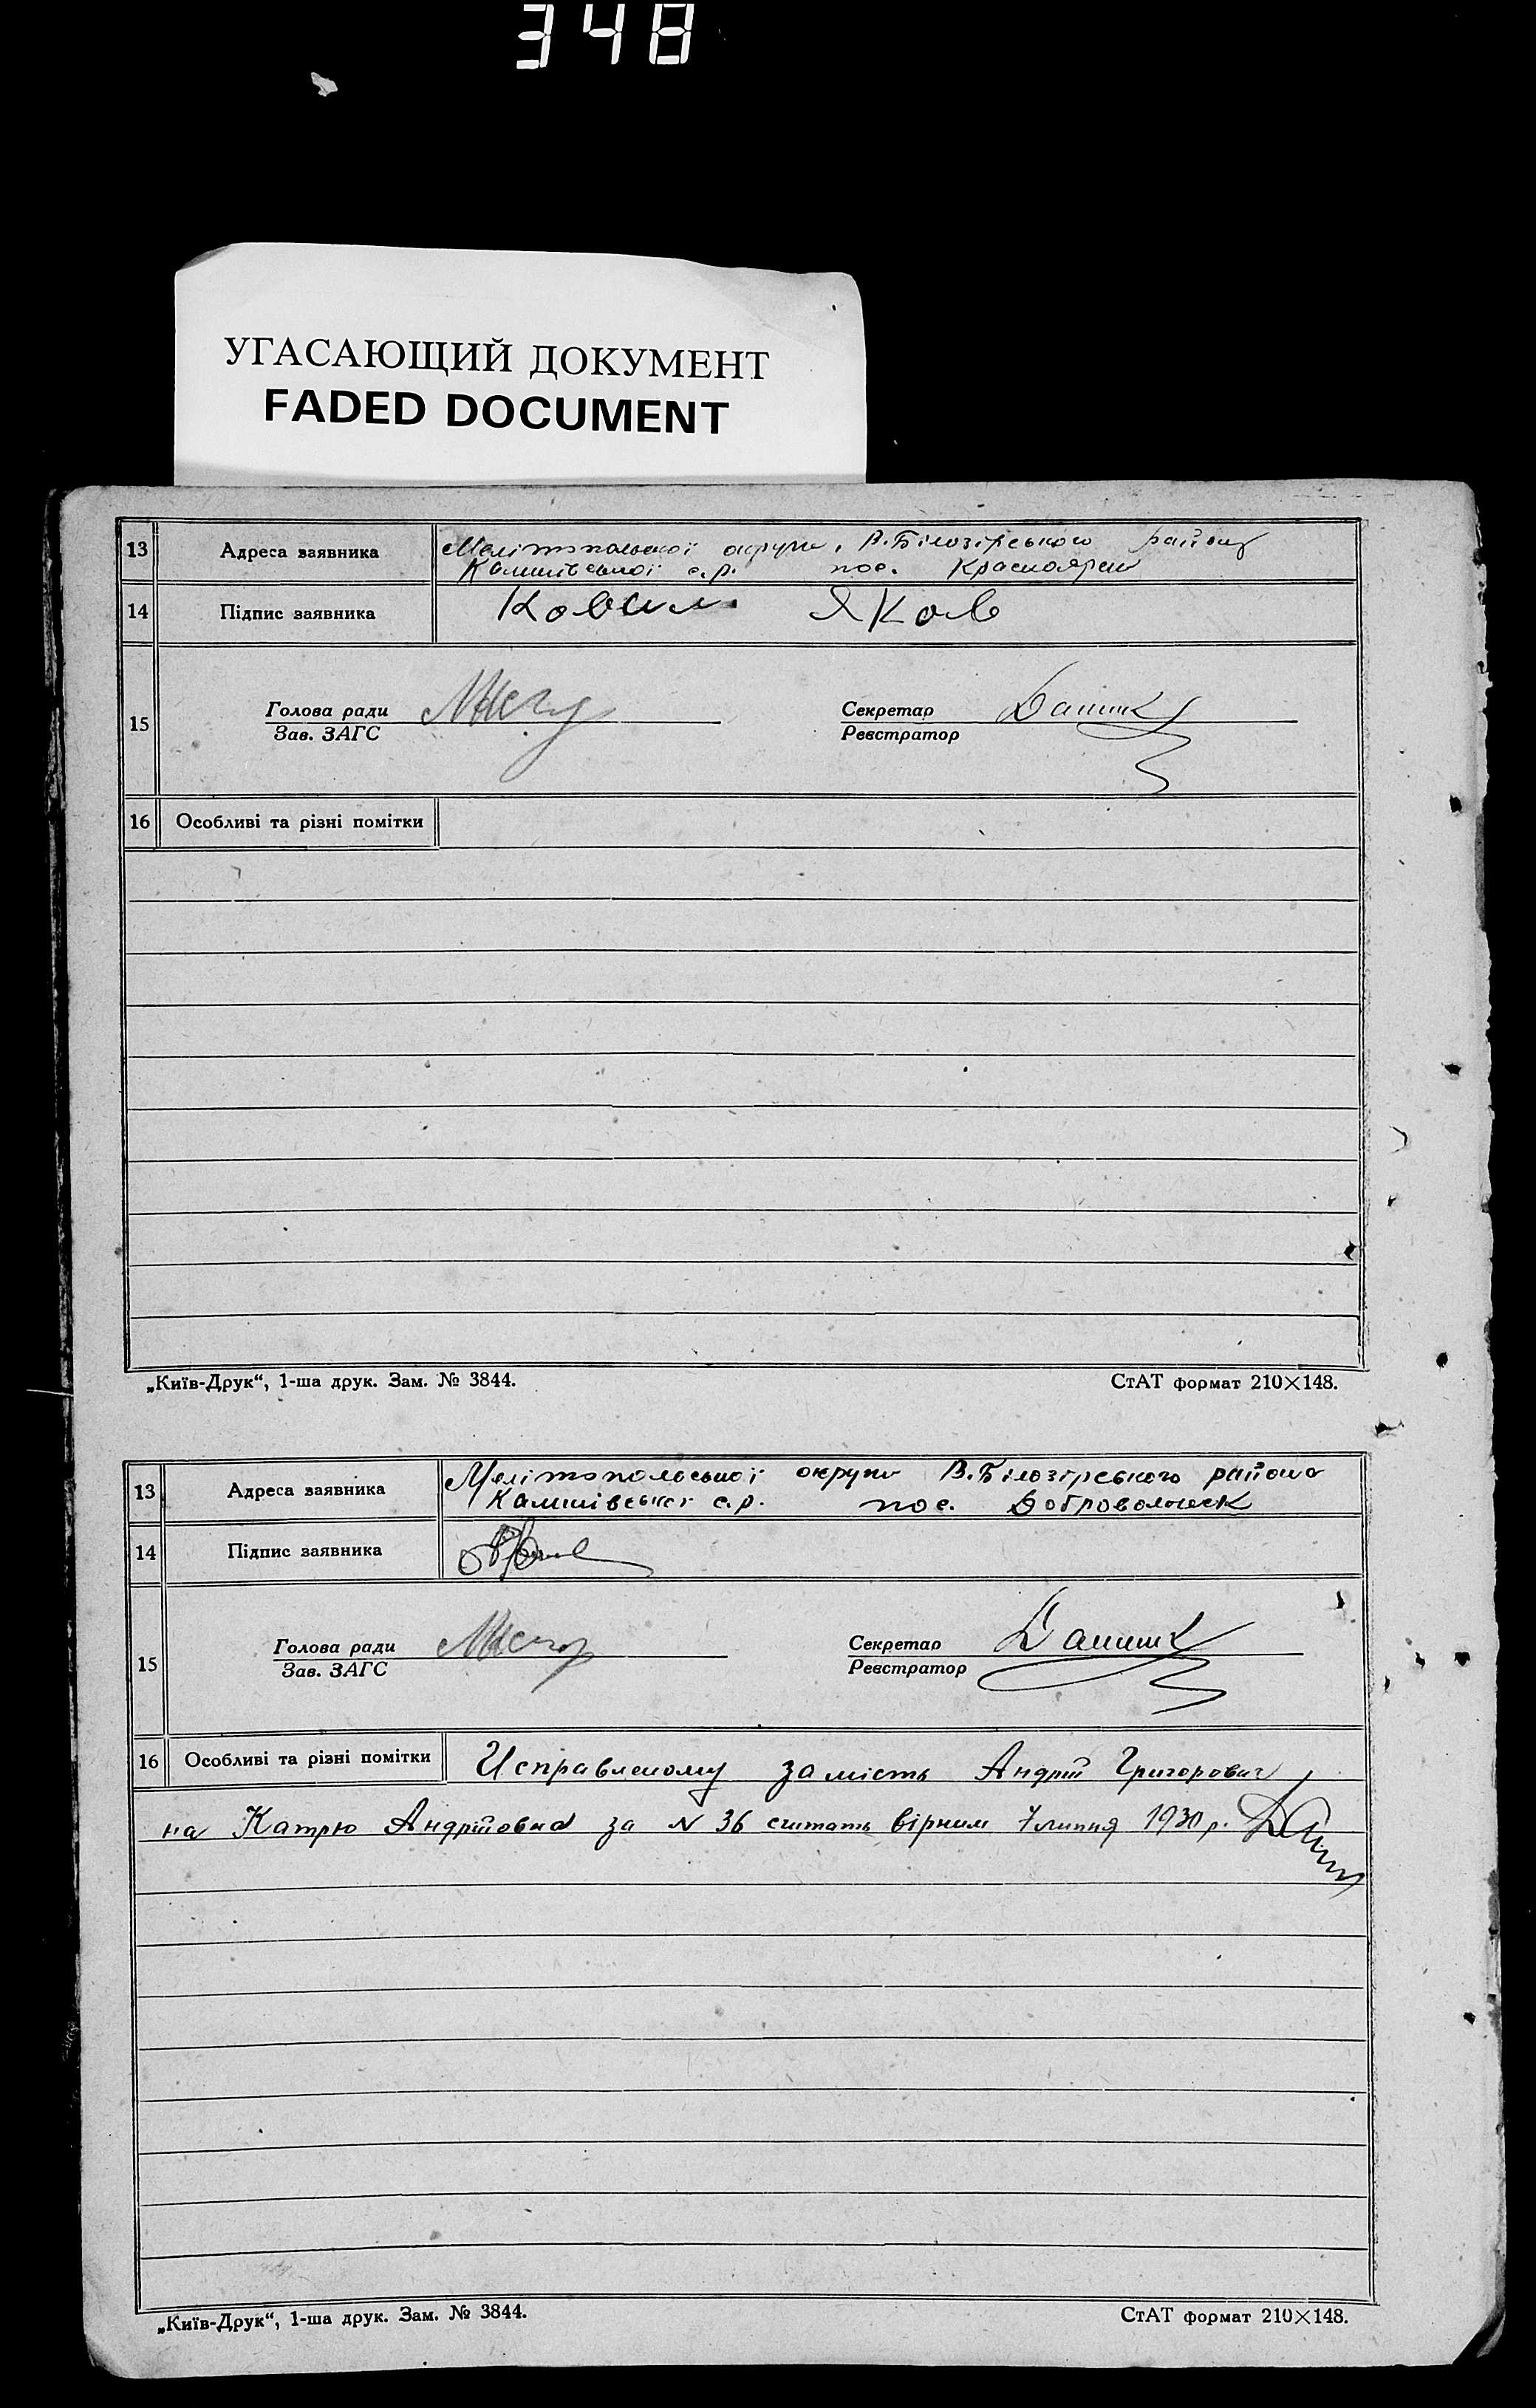 348
УГАСАЮЩИЙ ДОКУМЕНТ
FADED DOCUMENT
13 Адреса заявника Мелітопольської округи, В.Білозірського району
Камишівської с.р. пос. Красноярськ
14 Підпис заявника Яков
15 Голова ради
Зав. ЗАГС
Секретар
Реєстратор
16 Особливі та різні помітки
„Київ-Друк“, 1-ша друк. Зам. № 3844. СтАТ формат 210×148.
13 Адреса заявника Мелітопольської округи В.Білозірського району
Камишівської с.р. пос. Добровольск
14 Підпис заявника
15 Голова ради
Зав. ЗАГС
Секретар
Реєстратор
16 Особливі та різні помітки Исправленому замість Андрій Григорович
на Катрю Андрійовна за N 36 считать вірним 7 липня 1930 р.
„Київ-Друк“, 1-ша друк. Зам. № 3844. СтАТ формат 210×148.